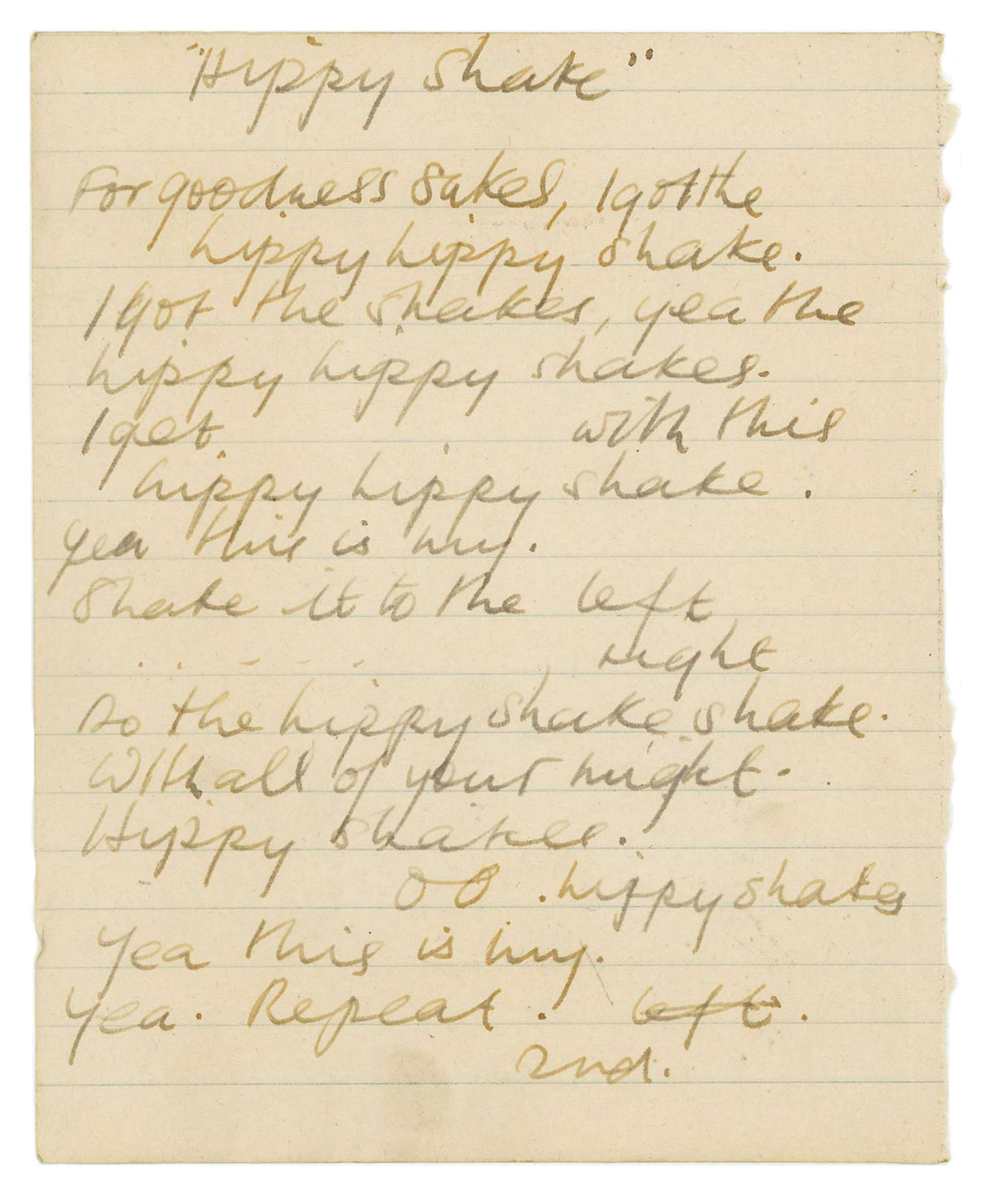 "Hippy Shake"
For goodness sakes, I got the
hippy hippy shake.
I got the shakes, yea the
hippy hippy shakes.
I get with this
hippy hippy shake.
yea this is my.
Shake it to the left
right
Do the hippy shake shake.
With all of your might.
Hippy shakes.
OO . hippy shakes
Yea this is my.
Yea. Repeat. left.
2nd.